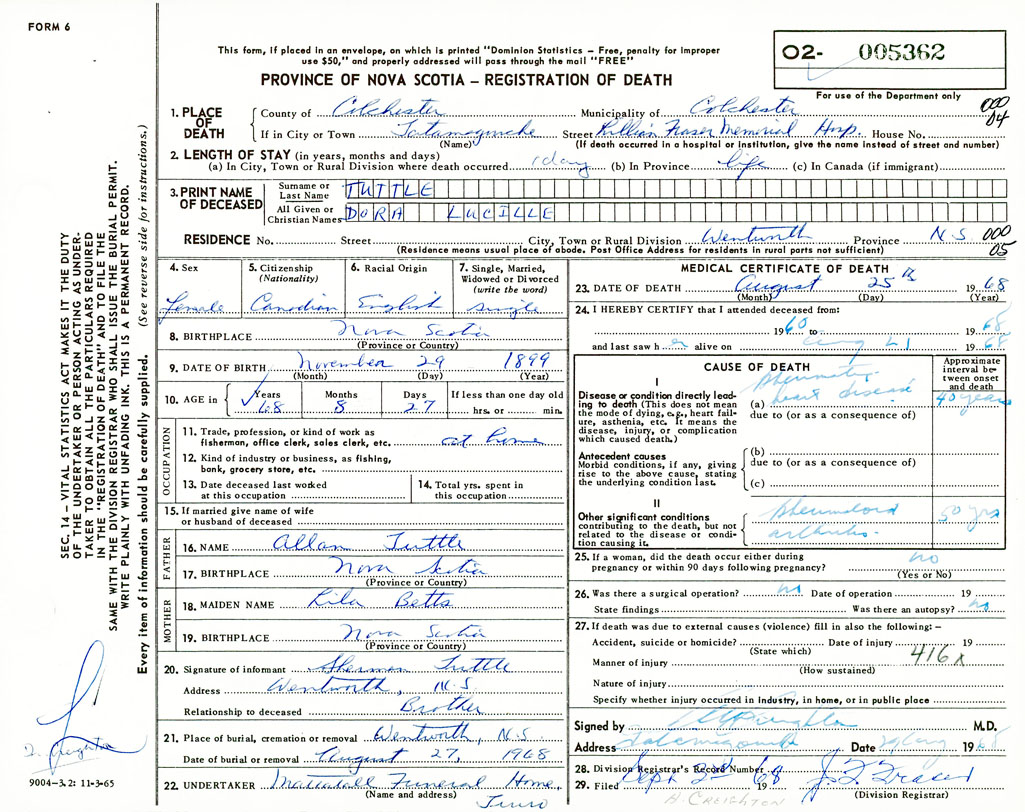 FORM 6
This form, if placed in an envelope, on which is printed "Dominion Statistics – Free, penalty for improper
use $50," and properly addressed will pass through the mail "FREE"
PROVINCE OF NOVA SCOTIA – REGISTRATION OF DEATH
02- 005362
For use of the Department only
1. PLACE OF DEATH
County of Colchester Municipality of Colchester 000 04
If in City or Town Tatamagouche Street Killian Fraser Memorial Hosp. House No.
(Name) (If death occurred in a hospital or institution, give the name instead of street and number)
2. LENGTH OF STAY (in years, months and days)
(a) In City, Town or Rural Division where death occurred 1 day (b) In Province life (c) In Canada (if immigrant)
3. PRINT NAME OF DECEASED
Surname or Last Name TUTTLE
All Given or Christian Names DORA LUCILLE
RESIDENCE No. Street City, Town or Rural Division Wentworth Province N.S. 000 05
(Residence means usual place of abode. Post Office Address for residents in rural parts not sufficient)
4. Sex
Female
5. Citizenship (Nationality)
Canadian
6. Racial Origin
English
7. Single, Married, Widowed or Divorced (write the word)
single
8. BIRTHPLACE Nova Scotia
(Province or Country)
9. DATE OF BIRTH November 29 1899
(Month) (Day) (Year)
10. AGE in Years Months Days If less than one day old
68 8 27 hrs. or min.
OCCUPATION
11. Trade, profession, or kind of work as
fisherman, office clerk, sales clerk, etc. at home
12. Kind of industry or business, as fishing,
bank, grocery store, etc.
13. Date deceased last worked
at this occupation
14. Total yrs. spent in
this occupation
15. If married give name of wife
or husband of deceased
FATHER
16. NAME Allan Tuttle
17. BIRTHPLACE Nova Scotia
(Province or Country)
MOTHER
18. MAIDEN NAME Lila Betts
19. BIRTHPLACE Nova Scotia
(Province or Country)
20. Signature of informant Sherman Tuttle
Address Wentworth, N.S
Relationship to deceased Brother
21. Place of burial, cremation or removal Wentworth, N.S.
Date of burial or removal August 27, 1968
22. UNDERTAKER Mattatall Funeral Home,
(Name and address) Truro
MEDICAL CERTIFICATE OF DEATH
23. DATE OF DEATH August 25th 1968
(Month) (Day) (Year)
24. I HEREBY CERTIFY that I attended deceased from:
1960 to 1968
and last saw her alive on Aug 21 1968
CAUSE OF DEATH
Approximate interval between onset and death
I
Disease or condition directly leading
to death (This does not mean
the mode of dying, e.g., heart failure,
asthenia, etc. It means the
disease, injury, or complication
which caused death.)
(a) Rheumatic heart disease 40 years
due to (or as a consequence of)
Antecedent causes
Morbid conditions, if any, giving
rise to the above cause, stating
the underlying condition last.
(b)
due to (or as a consequence of)
(c)
II
Other significant conditions
contributing to the death, but not
related to the disease or condition
causing it.
Rheumatoid arthritis. 50 yrs
25. If a woman, did the death occur either during
pregnancy or within 90 days following pregnancy? no
(Yes or No)
26. Was there a surgical operation? no Date of operation 19
State findings Was there an autopsy? no
27. If death was due to external causes (violence) fill in also the following:–
Accident, suicide or homicide? Date of injury 19
(State which)
Manner of injury 416 x
(How sustained)
Nature of injury
Specify whether injury occurred in industry, in home, or in public place
Signed by M.D.
Address Tatamagouche Date Aug 1968
28. Division Registrar's Record Number
29. Filed Sept 2nd 1968 J. F. Fraser
(Division Registrar)
D. Creighton
9004-3.2: 11-3-65
SEC. 14 – VITAL STATISTICS ACT MAKES IT THE DUTY
OF THE UNDERTAKER OR PERSON ACTING AS UNDER-
TAKER TO OBTAIN ALL THE PARTICULARS REQUIRED
IN THE "REGISTRATION OF DEATH" AND TO FILE THE
SAME WITH THE DIVISION REGISTRAR WHO SHALL ISSUE THE BURIAL PERMIT.
WRITE PLAINLY WITH UNFADING INK. THIS IS A PERMANENT RECORD.
Every item of information should be carefully supplied. (See reverse side for instructions.)
D. CREIGHTON